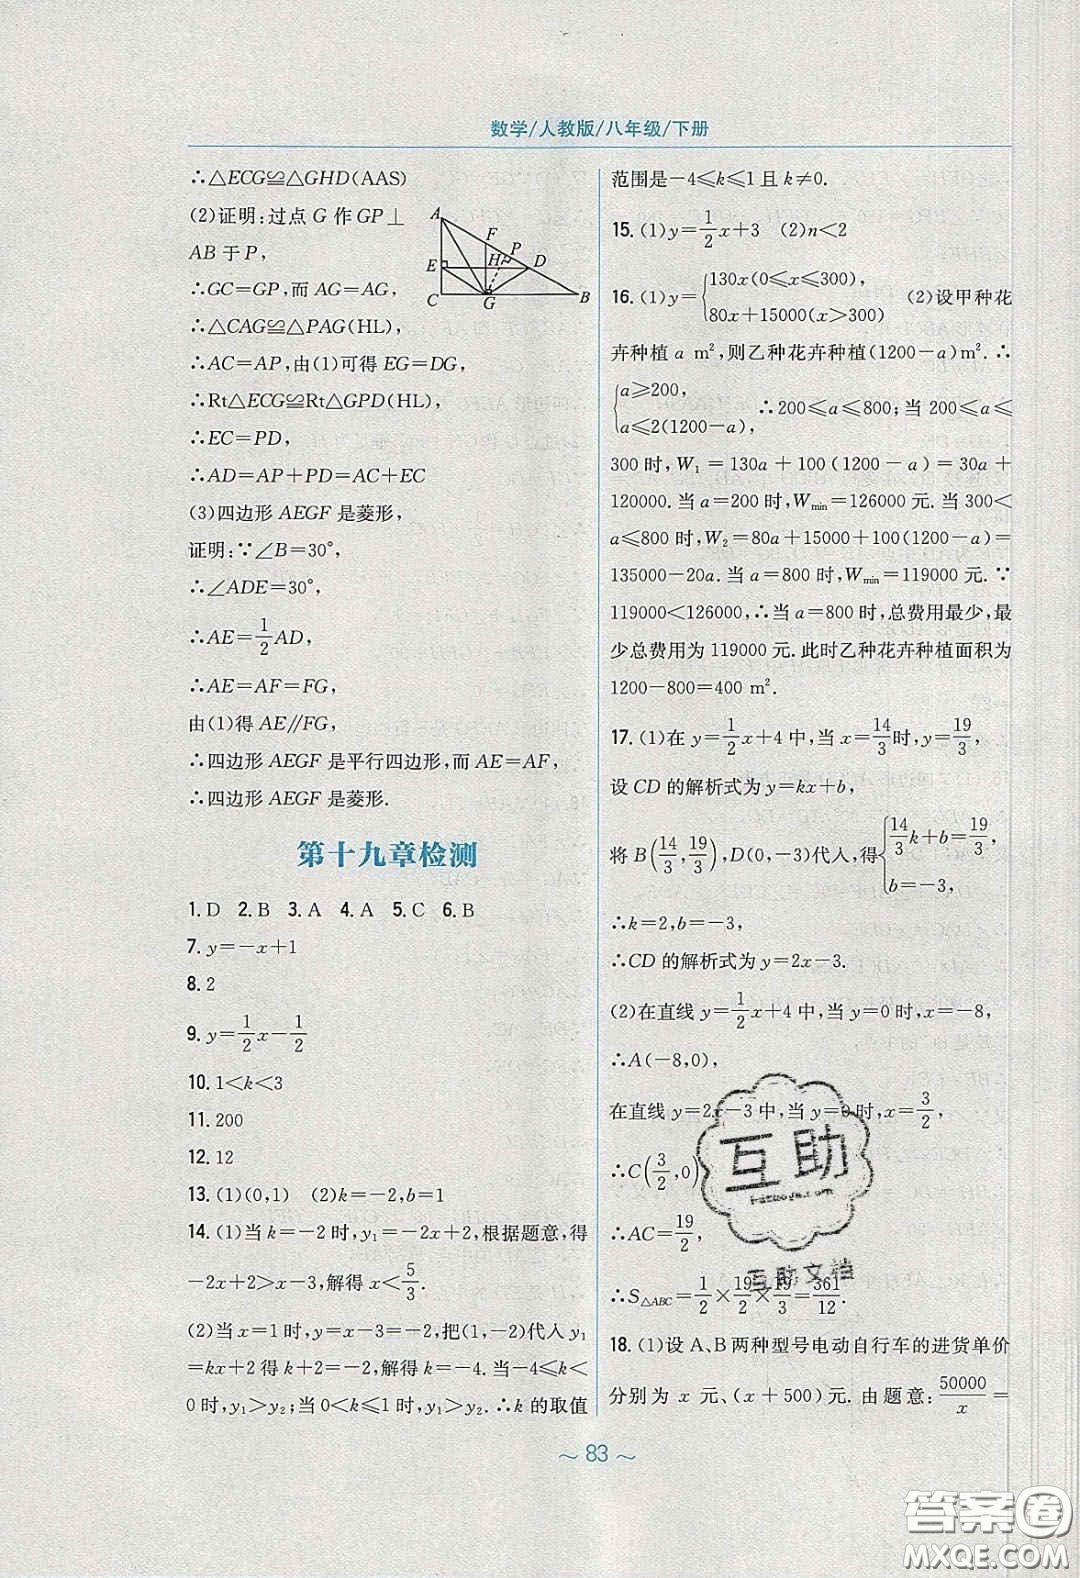 数学/人教版/八年级/下册
∴△ECG≌△GHD(AAS)
(2)证明:过点 G 作 GP⊥
AB 于 P,
∴GC=GP,而 AG=AG,
∴△CAG≌△PAG(HL),
∴AC=AP,由(1)可得 EG=DG,
∴Rt△ECG≌Rt△GPD(HL),
∴EC=PD,
∴AD=AP+PD=AC+EC
(3)四边形 AEGF 是菱形,
证明:∵∠B=30°,
∴∠ADE=30°,
∴AE=1/2AD,
∴AE=AF=FG,
由(1)得 AE∥FG,
∴四边形 AEGF 是平行四边形,而 AE=AF,
∴四边形 AEGF 是菱形.
A
F
P
H
E
D
C
G
B
第十九章检测
1. D 2. B 3. A 4. A 5. C 6. B
7. y=-x+1
8. 2
9. y=1/2x-1/2
10. 1<k<3
11. 200
12. 12
13. (1)(0,1) (2)k=-2,b=1
14. (1)当 k=-2 时,y₁=-2x+2,根据题意,得
-2x+2>x-3,解得 x<5/3.
(2)当 x=1 时,y=x-3=-2,把(1,-2)代入 y₁
=kx+2 得 k+2=-2,解得 k=-4. 当-4≤k<
0 时,y₁>y₂;当 0<k≤1 时,y₁>y₂.∴k 的取值
范围是-4≤k≤1 且 k≠0.
15. (1)y=1/2x+3 (2)n<2
16. (1)y={130x(0≤x≤300),
80x+15000(x>300) (2)设甲种花
卉种植 a m²,则乙种花卉种植(1200-a)m².∴
{a≥200,
a≤2(1200-a), ∴200≤a≤800;当 200≤a≤
300 时,W₁=130a+100(1200-a)=30a+
120000.当 a=200 时,Wmin=126000 元.当 300<
a≤800 时,W₂=80a+15000+100(1200-a)=
135000-20a.当 a=800 时,Wmin=119000 元.∵
119000<126000,∴当 a=800 时,总费用最少,最
少总费用为 119000 元.此时乙种花卉种植面积为
1200-800=400 m².
17. (1)在 y=1/2x+4 中,当 x=14/3时,y=19/3,
设 CD 的解析式为 y=kx+b,
将 B(14/3,19/3),D(0,-3)代入,得{14/3k+b=19/3,
b=-3,
∴k=2,b=-3,
∴CD 的解析式为 y=2x-3.
(2)在直线 y=1/2x+4 中,当 y=0 时,x=-8,
∴A(-8,0),
在直线 y=2x-3 中,当 y=0 时,x=3/2,
∴C(3/2,0)
∴AC=19/2,
∴S△ABC=1/2×19/2×19/3=361/12.
18. (1)设 A、B 两种型号电动自行车的进货单价
分别为 x 元、(x+500)元.由题意:50000/x=
互助
互助文档
~ 83 ~
答案圈
MXQE.COM